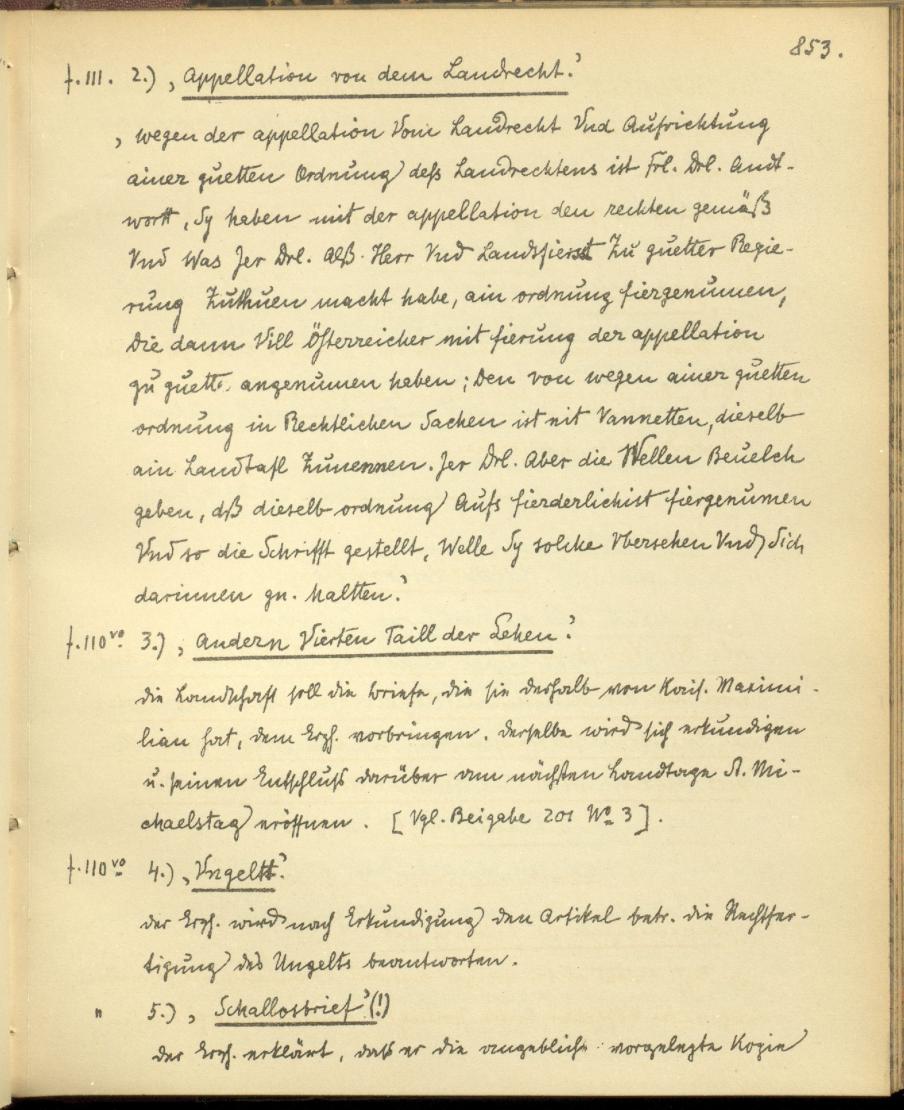 853.
f. 111. 2.) , Appellation von dem Landrecht.'
, wegen der appellation Vom Landrecht Vnd Aufrichtung
ainer guetten Ordnung deß Landrechtens ist Frl. Drl. Andt-
wortt, Sy haben mit der appellation den rechten gemäß
Vnd Was Jer Drl. Alß Herr Vnd Landtsfierst Zu guetter Regie-
rung Zuthuen macht habe, ain ordnung fiergenumen,
Die dann Vill Österreicher mit fierung der appellation
zu guett. angenumen haben; Den von wegen ainer guetten
ordnung in Rechtlichen Sachen ist nit Vannetten, dieselb
ain Landtafl Zunennen. Jer Drl. Aber die Wellen Beuelch
geben, dß dieselb ordnung Aufs fierderlichist fiergenumen
Vnd so die Schrifft gestellt, Welle Sy solche Vbersehen Vnd Sich
darinnen gn. haltten.'
f. 110 vo. 3.) , Andern Vierten Taill der Lehen'.
die Landschaft soll die Briefe, die sie deshalb von Kais. Maximi-
lian hat, dem Erzh. vorbringen. derselbe wird sich erkundigen
u. seinen Entschluß darüber am nächsten Landtage St. Mi-
chaelstag eröffnen. [Vgl. Beigabe 201 No 3].
f. 110 vo 4.) , Vngeltt.'
der Erzh. wird nach Erkundigung den Artikel betr. die Rechtfer-
tigung des Ungelts beantworten.
" 5.) , Schallosbrief' (!)
der Erzh. erklärt, daß er die angeblich vorgelegte Kopie